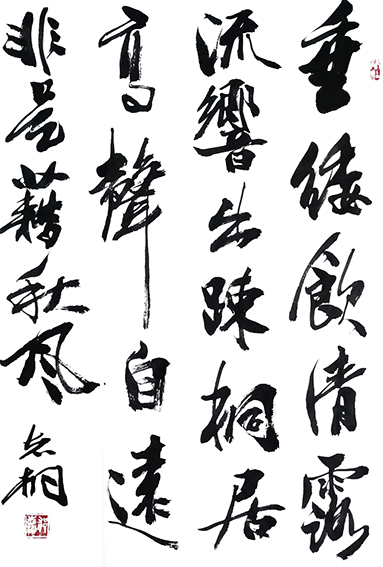 垂緌飲清露
流響出疎桐居
高聲自遠
非是藉秋風